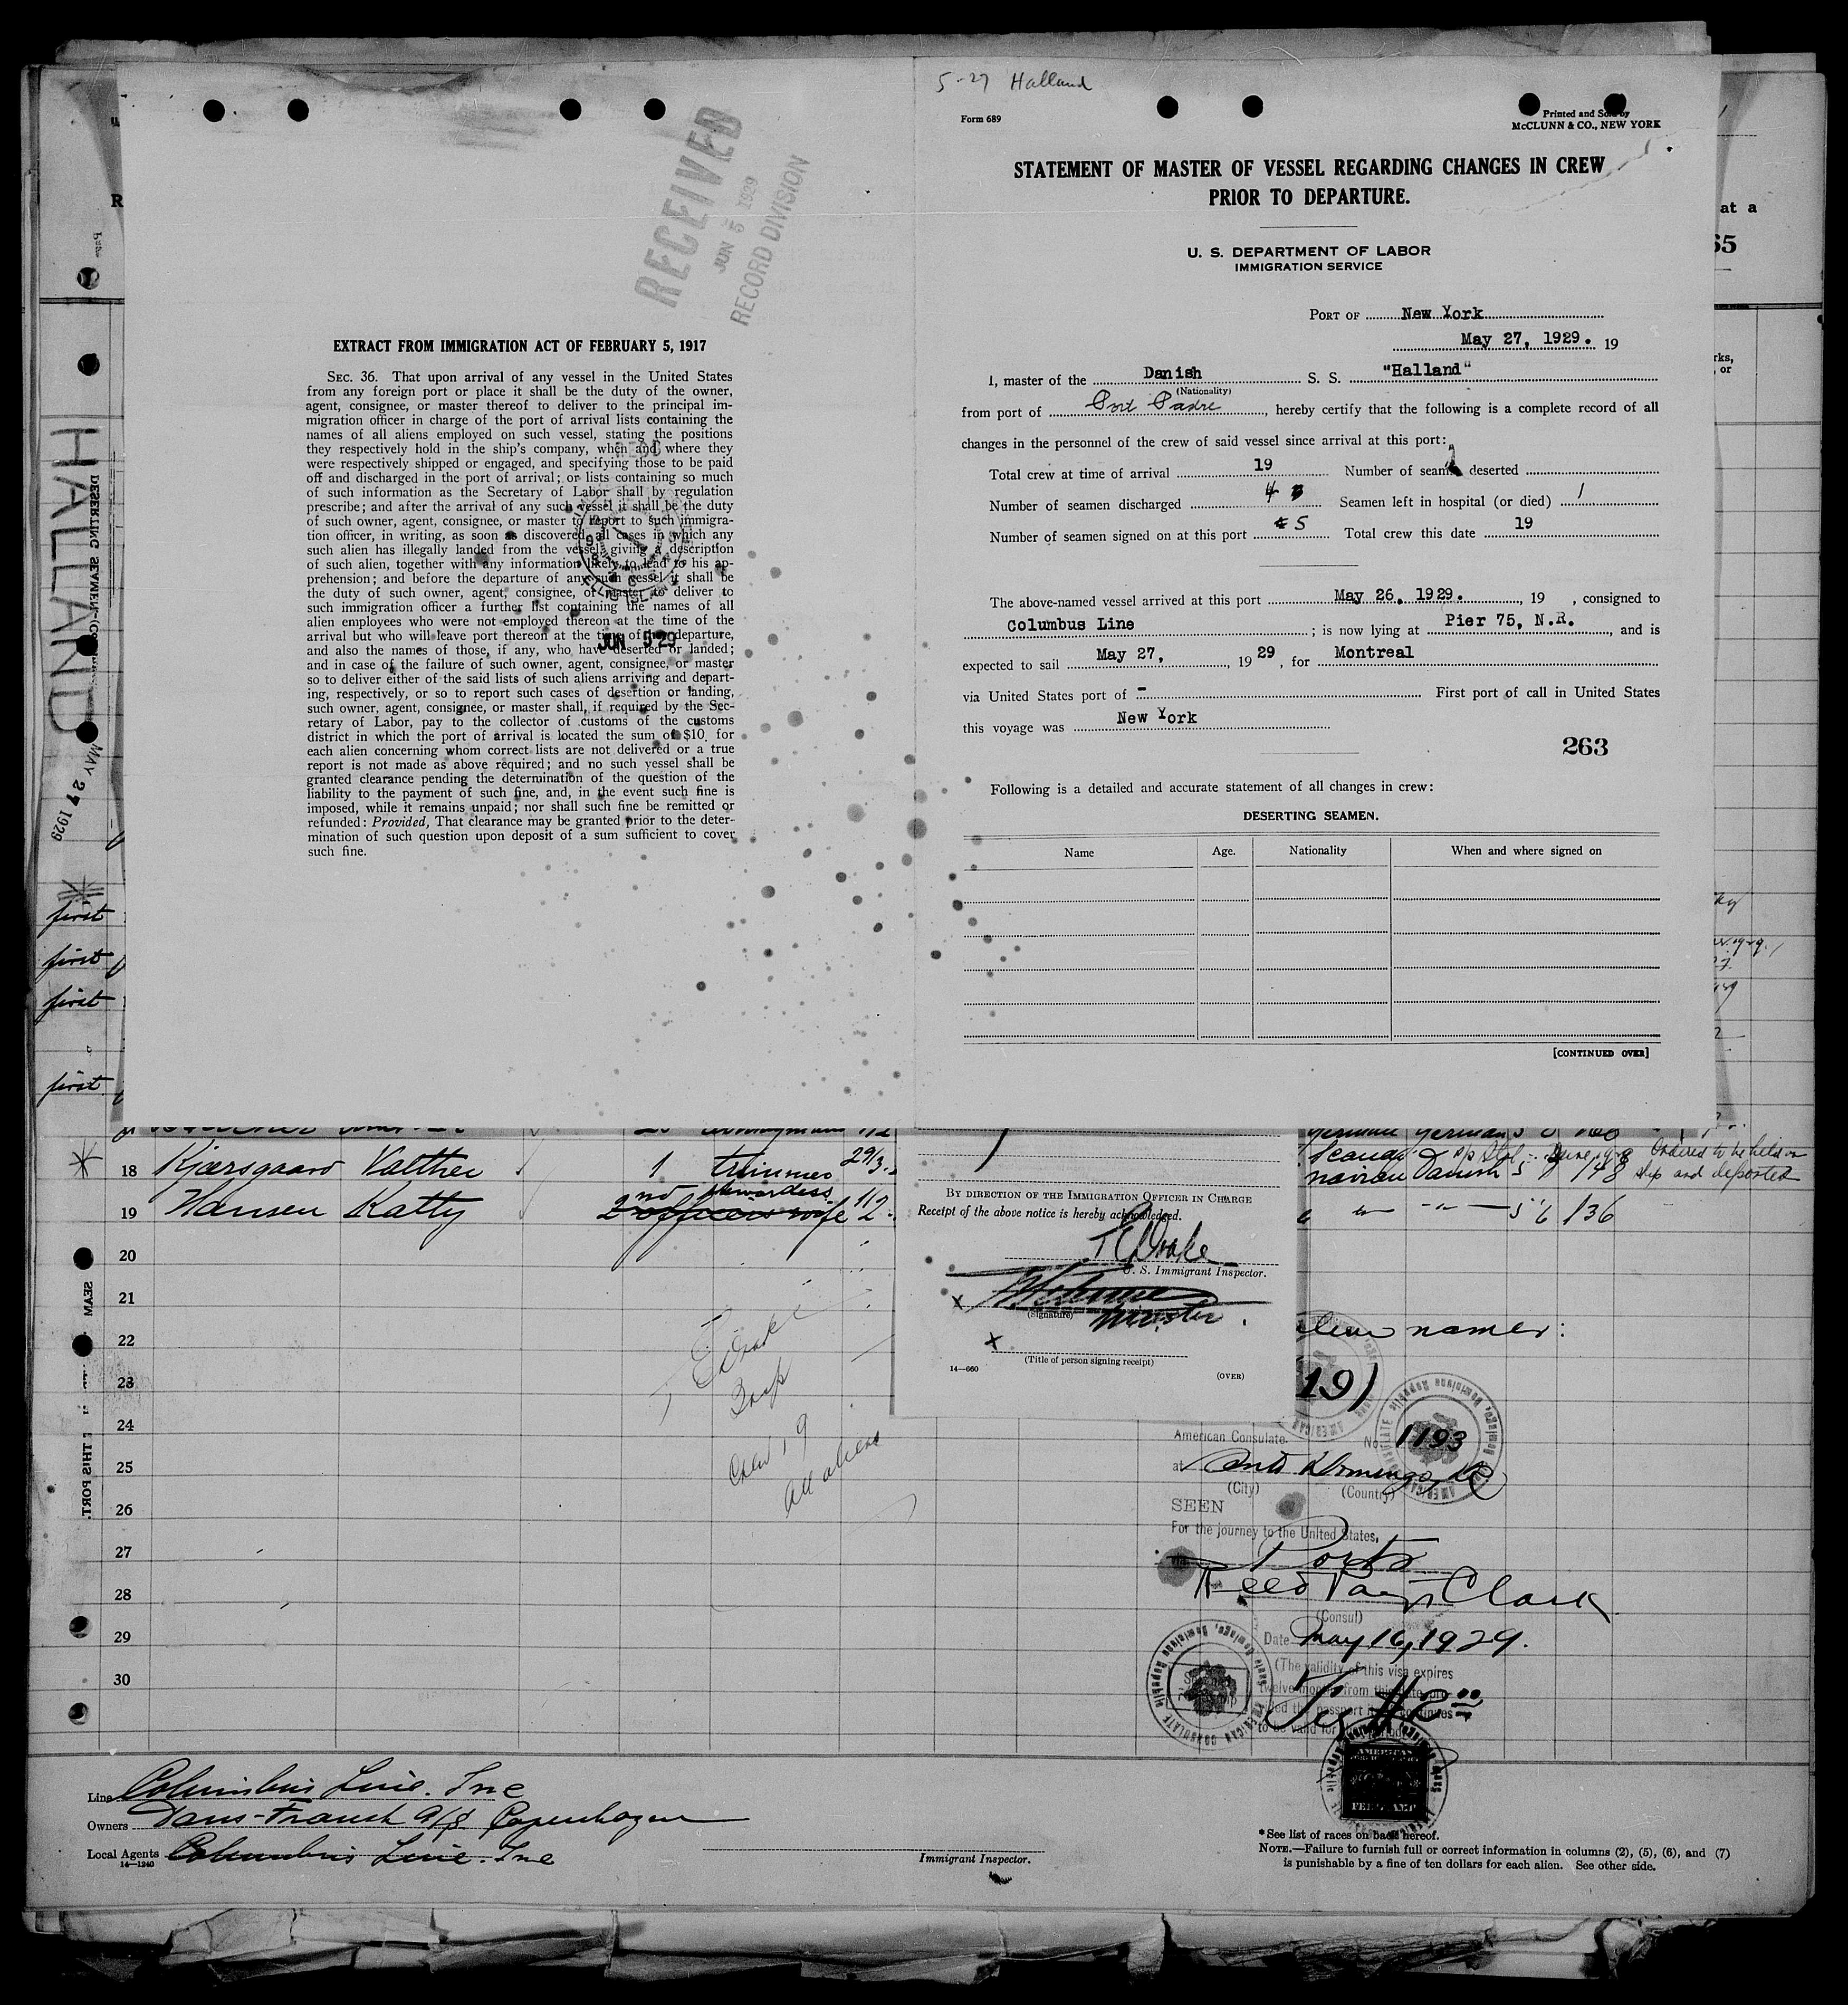 5-27 Halland
Form 689
Printed and Sold by
McCLUNN & CO., NEW YORK
STATEMENT OF MASTER OF VESSEL REGARDING CHANGES IN CREW
PRIOR TO DEPARTURE.
U. S. DEPARTMENT OF LABOR
IMMIGRATION SERVICE
PORT OF New York
May 27, 1929. 19
I, master of the Danish S. S. "Halland"
(Nationality)
from port of Port Padre, hereby certify that the following is a complete record of all
changes in the personnel of the crew of said vessel since arrival at this port:
Total crew at time of arrival 19 Number of seamen deserted
Number of seamen discharged 4 Seamen left in hospital (or died) 1
Number of seamen signed on at this port 5 Total crew this date 19
The above-named vessel arrived at this port May 26, 1929. , 19 , consigned to
Columbus Line ; is now lying at Pier 75, N.R. , and is
expected to sail May 27, , 19 29 , for Montreal
via United States port of - First port of call in United States
this voyage was New York
263
Following is a detailed and accurate statement of all changes in crew:
DESERTING SEAMEN.
Name Age. Nationality When and where signed on
[CONTINUED OVER]
RECEIVED
JUN 5 1929
RECORD DIVISION
EXTRACT FROM IMMIGRATION ACT OF FEBRUARY 5, 1917
SEC. 36. That upon arrival of any vessel in the United States
from any foreign port or place it shall be the duty of the owner,
agent, consignee, or master thereof to deliver to the principal im-
migration officer in charge of the port of arrival lists containing the
names of all aliens employed on such vessel, stating the positions
they respectively hold in the ship's company, when and where they
were respectively shipped or engaged, and specifying those to be paid
off and discharged in the port of arrival; or lists containing so much
of such information as the Secretary of Labor shall by regulation
prescribe; and after the arrival of any such vessel it shall be the duty
of such owner, agent, consignee, or master to report to such immigra-
tion officer, in writing, as soon as discovered, all cases in which any
such alien has illegally landed from the vessel, giving a description
of such alien, together with any information likely to lead to his ap-
prehension; and before the departure of any such vessel it shall be
the duty of such owner, agent, consignee, or master to deliver to
such immigration officer a further list containing the names of all
alien employees who were not employed thereon at the time of the
arrival but who will leave port thereon at the time of her departure,
and also the names of those, if any, who have deserted or landed;
and in case of the failure of such owner, agent, consignee, or master
so to deliver either of the said lists of such aliens arriving and depart-
ing, respectively, or so to report such cases of desertion or landing,
such owner, agent, consignee, or master shall, if required by the Sec-
retary of Labor, pay to the collector of customs of the customs
district in which the port of arrival is located the sum of $10. for
each alien concerning whom correct lists are not delivered or a true
report is not made as above required; and no such vessel shall be
granted clearance pending the determination of the question of the
liability to the payment of such fine, and, in the event such fine is
imposed, while it remains unpaid; nor shall such fine be remitted or
refunded: Provided, That clearance may be granted prior to the deter-
mination of such question upon deposit of a sum sufficient to cover
such fine.
JUN 5 29
HALLAND
MAY 27 1929
at a
65
first
first
first
first
18 Kjærsgaard Valther 1 trimmer 29/3 Scandi-
navian Danish 5 148 Ordered to be held on
ship and deported
19 Hansen Katty stewardess
2nd officers wife 1/2 5 6 136
20
21
22
23
24
25
26
27
28
29
30
T Drake
Insp
Crew 19
All aliens
BY DIRECTION OF THE IMMIGRATION OFFICER IN CHARGE
Receipt of the above notice is hereby acknowledged.
T Drake
U. S. Immigrant Inspector.
x
(Signature) Master.
x
(Title of person signing receipt)
14—660
(OVER)
names:
19)
American Consulate No. 1193
at Santo Domingo, DR
(City) (Country)
SEEN
For the journey to the United States,
via Ports
Reed Paige Clark
(Consul)
Date May 16, 1929.
(The validity of this visa expires
twelve months from this date
to be valid for
$2.00
Line Columbus Line. Inc
Owners Dans-Fransk a/s Copenhagen
Local Agents Columbus Line. Inc
14—1240
Immigrant Inspector.
* See list of races on back hereof.
NOTE.—Failure to furnish full or correct information in columns (2), (5), (6), and (7)
is punishable by a fine of ten dollars for each alien. See other side.